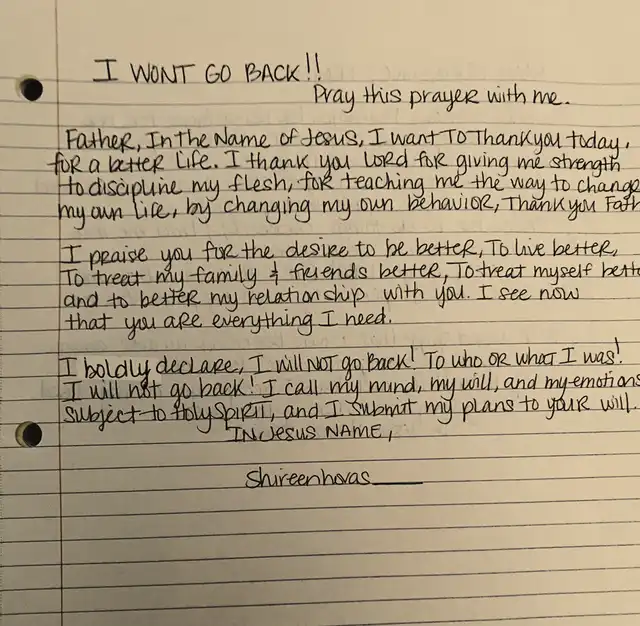 I WONT GO BACK!!
Pray this prayer with me.
Father, In the Name of Jesus, I want To Thank you today,
for a better Life. I thank you Lord for giving me strength
to discipline my flesh, for teaching me the way to change
my own life, by changing my own behavior, Thank you Fath
I praise you for the desire to be better, To live better,
To treat my family & friends better, To treat myself bette
and to better my relationship with you. I see now
that you are everything I need.
I boldly declare, I will NOT go Back! To who or what I was!
I will not go back! I call my mind, my will, and my emotions
subject to Holy SPIRIT, and I submit my plans to your will.
IN Jesus NAME,
Shireenhovas